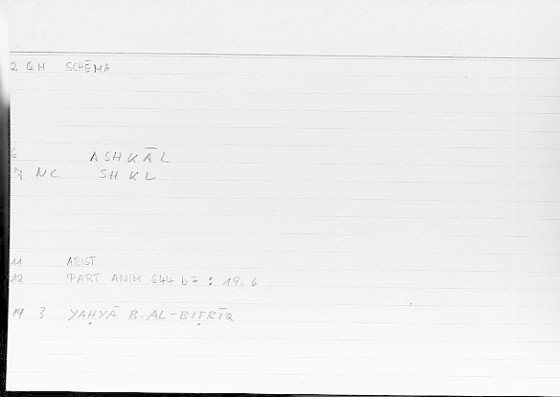 2 QH SCHĒMA
6 ASHKĀL
7 NC SHKL
11 ARIST
12 PART ANIM 644 b7 : 19.6
14 3 YAḤYĀ B. AL-BIṬRĪQ